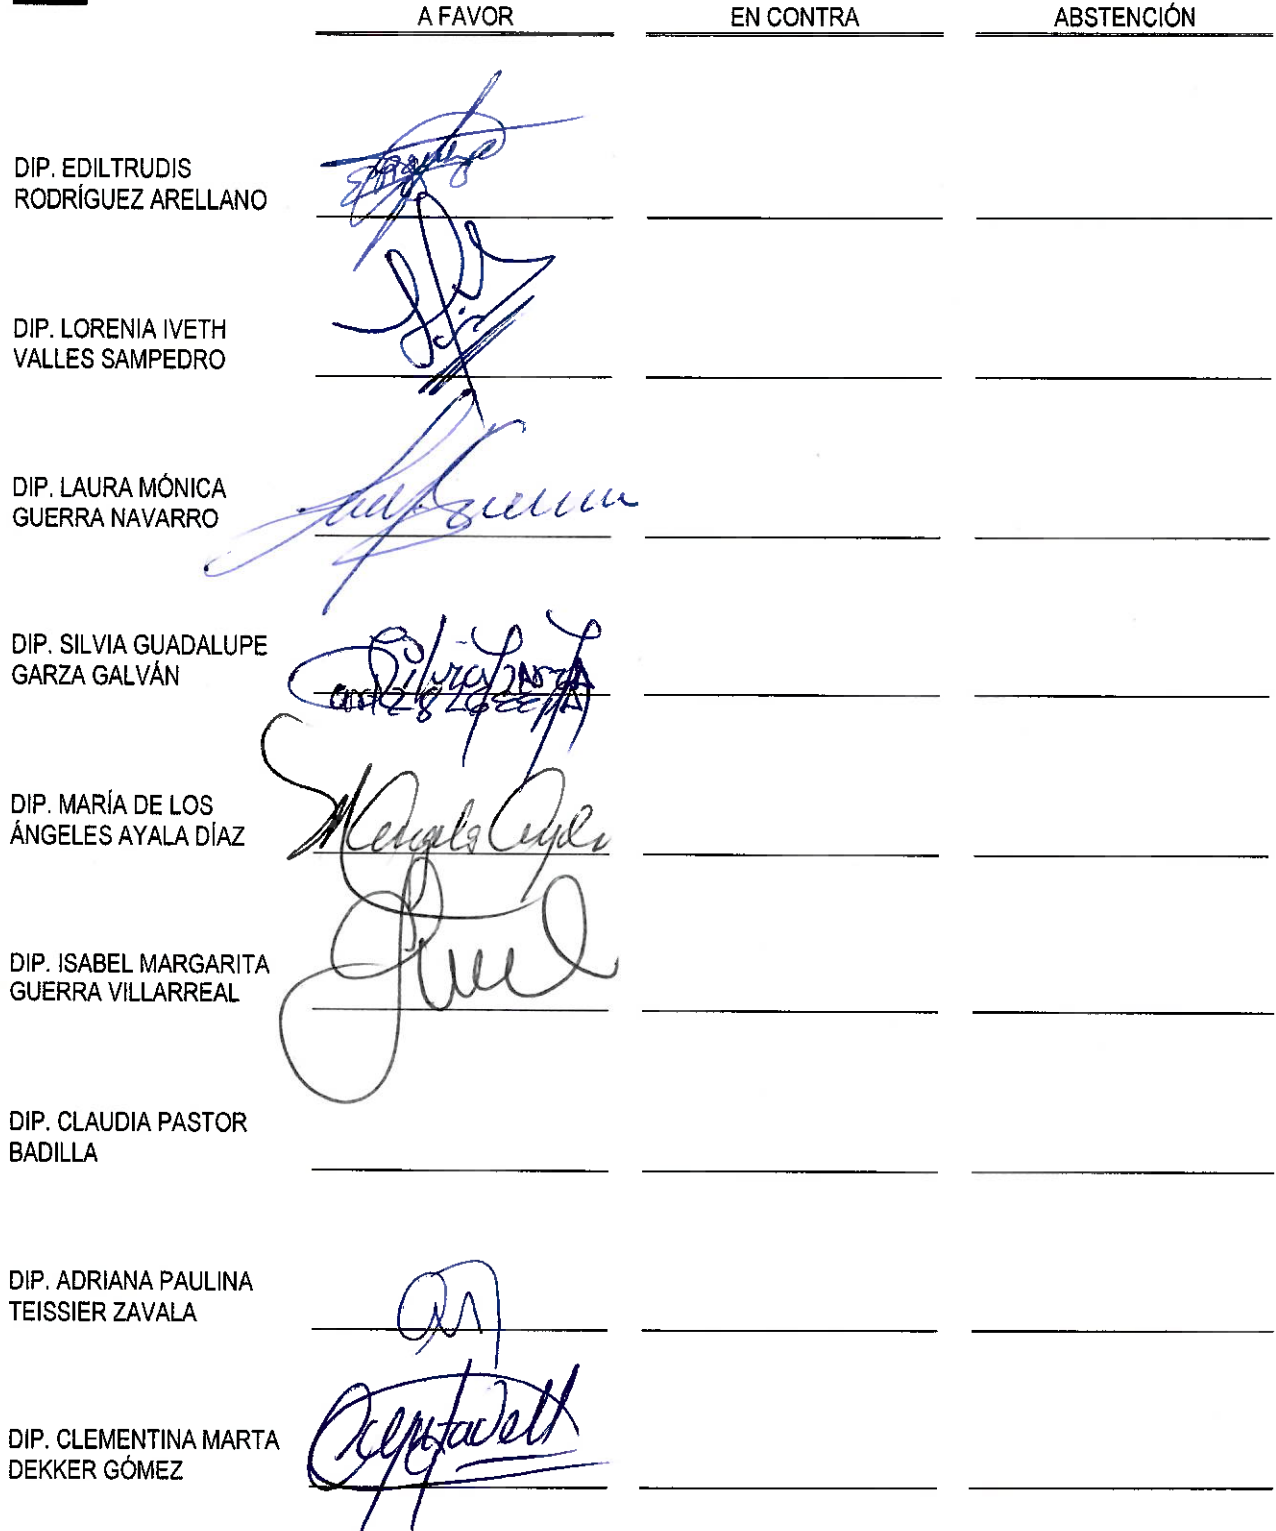 A FAVOR EN CONTRA ABSTENCIÓN
DIP. EDILTRUDIS
RODRÍGUEZ ARELLANO
DIP. LORENIA IVETH
VALLES SAMPEDRO
DIP. LAURA MÓNICA
GUERRA NAVARRO
DIP. SILVIA GUADALUPE
GARZA GALVÁN
Silvia Garza
DIP. MARÍA DE LOS
ÁNGELES AYALA DÍAZ
MAngeles Ayala
DIP. ISABEL MARGARITA
GUERRA VILLARREAL
DIP. CLAUDIA PASTOR
BADILLA
DIP. ADRIANA PAULINA
TEISSIER ZAVALA
DIP. CLEMENTINA MARTA
DEKKER GÓMEZ